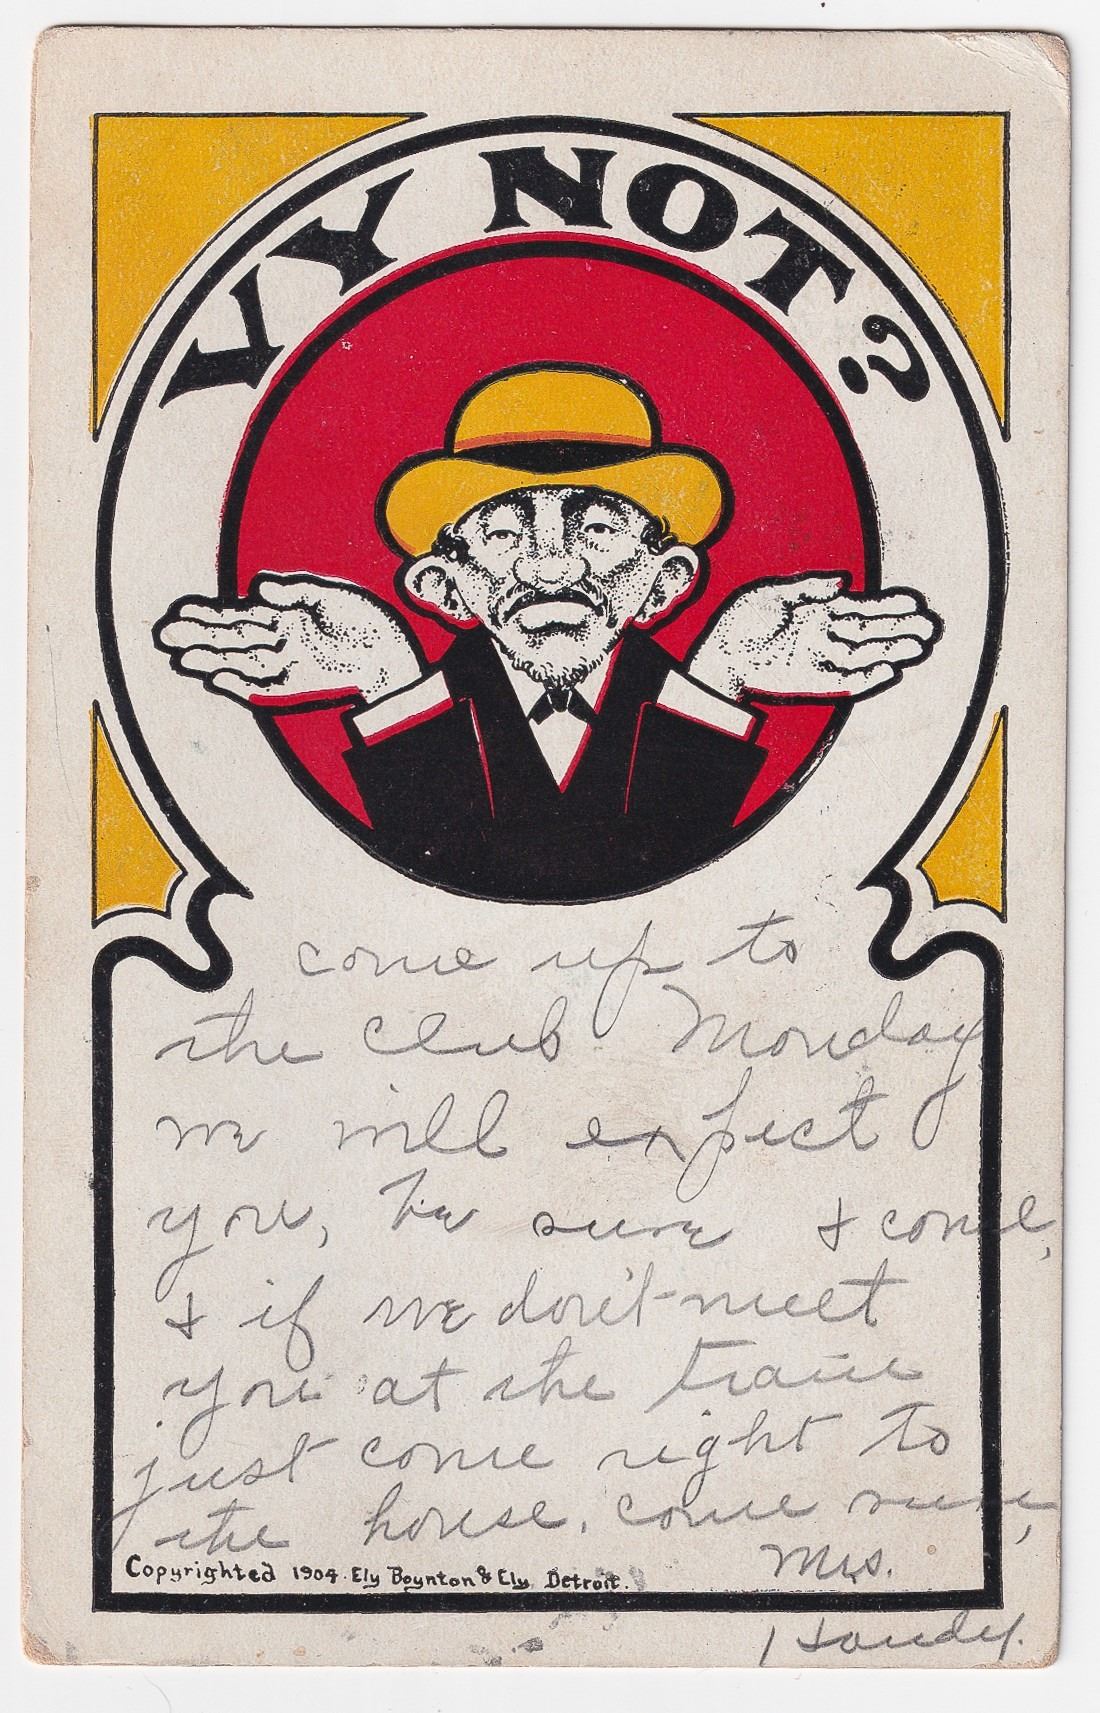 VY NOT?
come up to
the club Monday
we will expect
you, be sure & come,
& if we don't meet
you at the train
just come right to
the house, come sure,
Mrs.
Handy.
Copyrighted 1904 Ely Boynton & Ely Detroit.